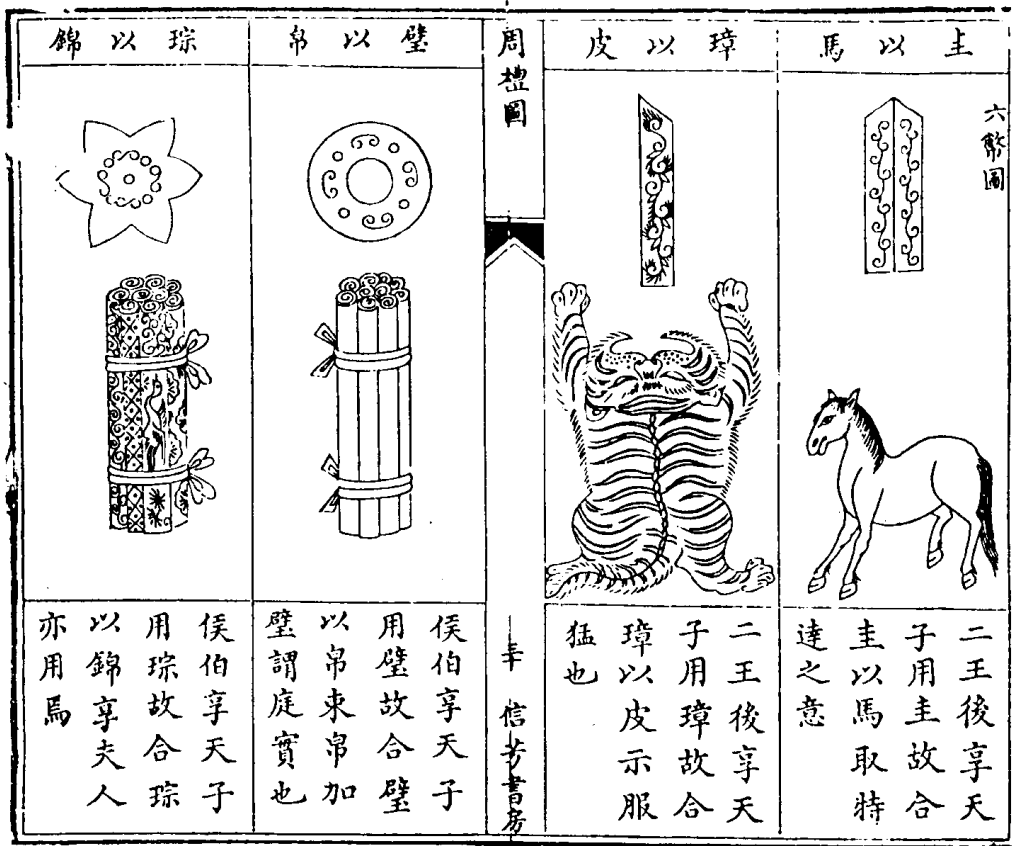 六幣圖
圭以馬
二王後享天
子用圭故合
圭以馬取特
達之意
璋以皮
二王後享天
子用璋故合
璋以皮示服
猛也
周禮圖
信芳書房
璧以帛
侯伯享天子
用璧故合璧
以帛束帛加
璧謂庭實也
琮以錦
侯伯享天子
用琮故合琮
以錦享夫人
亦用焉